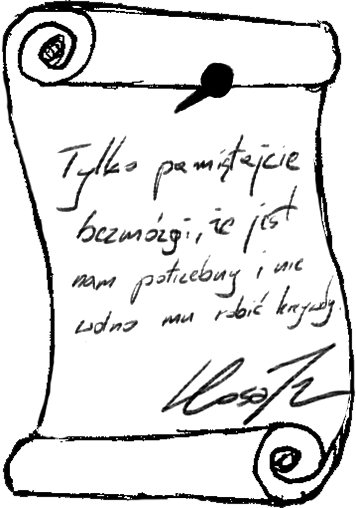 Tylko pamiętajcie
bezmózgi, że jest
nam potrzebny i nie
wolno mu robić krzywdy.